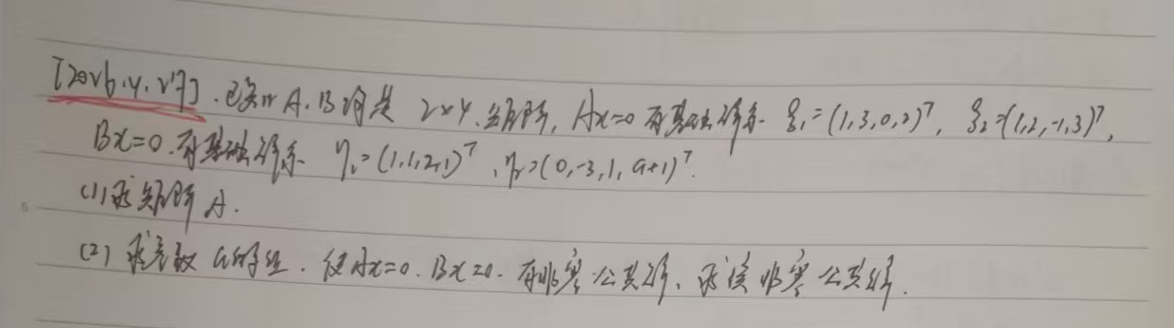 [2026.4.27]. 已知 A. B 均是 2×4 矩阵, Ax=0 有基础解系 ξ₁=(1,3,0,2)ᵀ, ξ₂=(1,2,-1,3)ᵀ,
Bx=0. 有基础解系 η₁=(1,1,2,1)ᵀ, η₂=(0,-3,1,a+1)ᵀ.
(1) 求矩阵 A.
(2) 求参数 a 的值. 使 Ax=0. Bx=0. 有非零公共解、求该非零公共解.